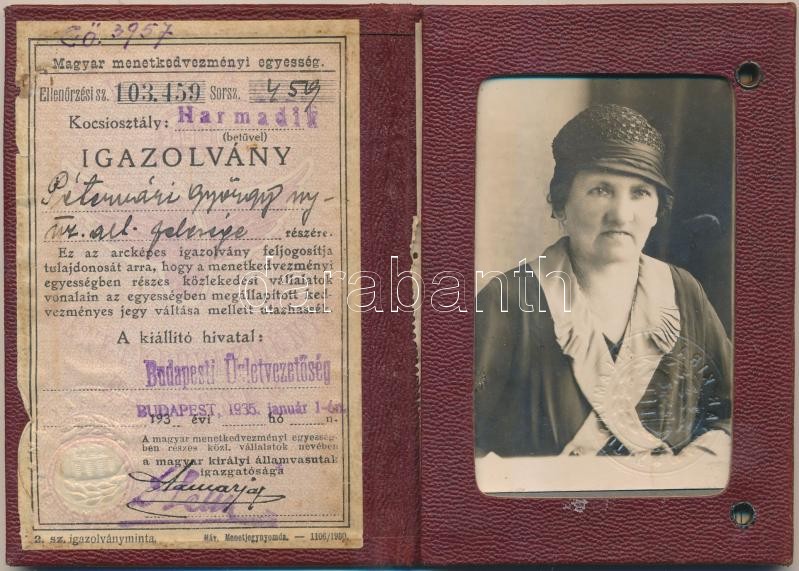 Cö. 3957
Magyar menetkedvezményi egyesség.
Ellenőrzési sz. 103,459 Sorsz. 459
Kocsiosztály: Harmadik
(betűvel)
IGAZOLVÁNY
Pétervári György ny-
alt. felesége részére.
Ez az arcképes igazolvány feljogosítja
tulajdonosát arra, hogy a menetkedvezményi
egyességben részes közlekedési vállalatok
vonalain az egyességben megállapított ked-
vezményes jegy váltása mellett utazhassék.
A kiállító hivatal:
Budapesti Üzletvezetőség
BUDAPEST, 1935. január 1-én
193 évi hó n.
A magyar menetkedvezményi egyesség-
ben részes közl. vállalatok nevében
a magyar királyi államvasutak
igazgatósága
2. sz. igazolványminta. Máv. Menetjegynyomda. — 1106/1930.
darabanth